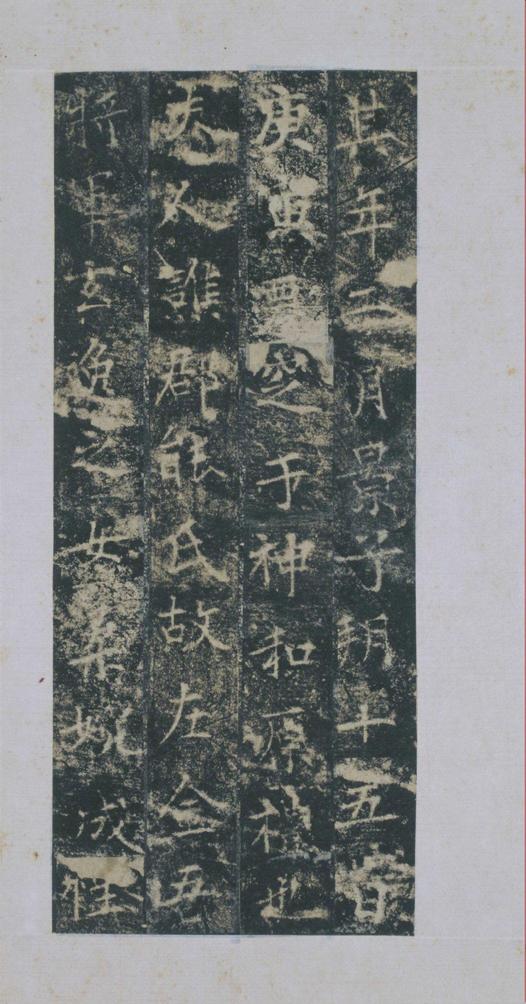 其年二月景子朔十五日
庚寅窆于神和原禮也
夫人譙郡能氏故左金吾
將軍玄逸之女柔婉成性